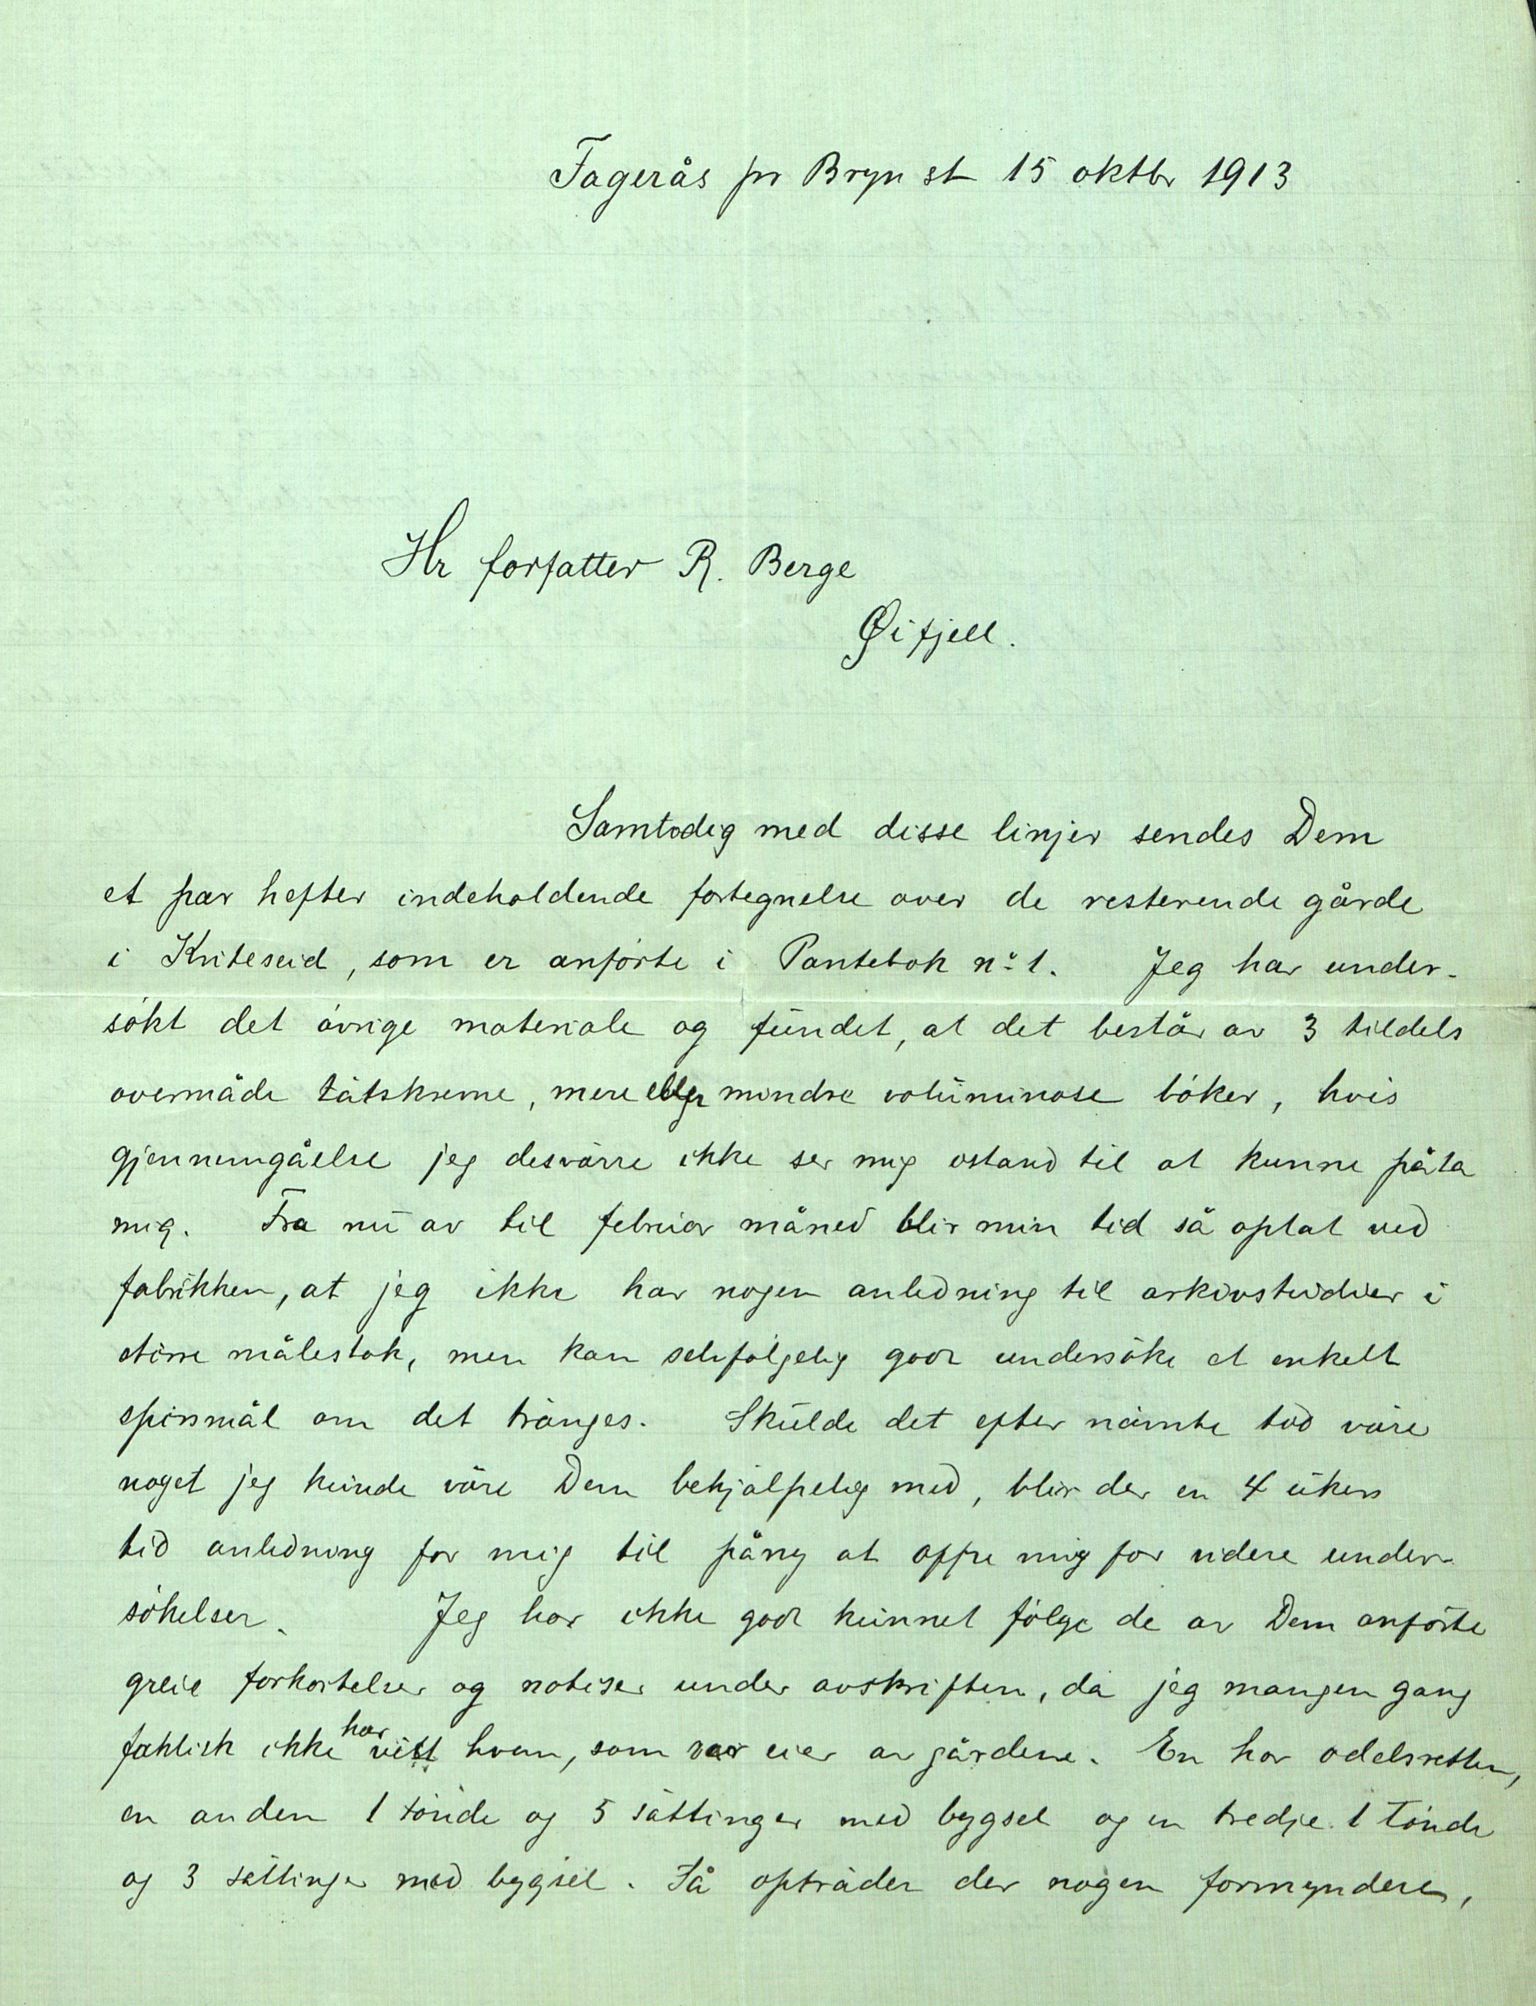 Fagerås pr Bryn st 15 oktbr 1913
Hr forfatter R. Berge
Øifjell.
Samtidig med disse linjer sendes Dem
et par hefter indeholdende fortegnelse over de resterende gårde
i Kviteseid, som er anförte i Pantebok no 1. Jeg har under-
sökt det övrige materiale og fundet, at det består av 3 tildels
overmåde tätskrevne, mere eller mindre voluminöse böker, hvis
gjennemgåelse jeg desvärre ikke ser mig istand til at kunne påta
mig. Fra nu av til februar måned blir min tid så optat ved
fabrikken, at jeg ikke har nogen anledning til arkivstudier i
större målestok, men kan selvfölgelig godt undersöke et enkelt
spörsmål om det tränges. Skulde det efter nävnte tid väre
noget jeg kunde väre Dem behjälpelig med, blir der en 4 ukers
tid anledning for mig til påny at offre mig for videre under-
sökelser. Jeg har ikke godt kunnet fölge de av Dem anförte
greie forkortelser og notiser under avskriften, da jeg mangen gang
faktisk ikke har visst hvem, som var eier av gårdene. En har odelsretten,
en anden 1 tönde og 5 sättinger med bygsel og en tredje 1 tönde
og 3 sättinger med bygsel. Så opträder der nogen formyndere,